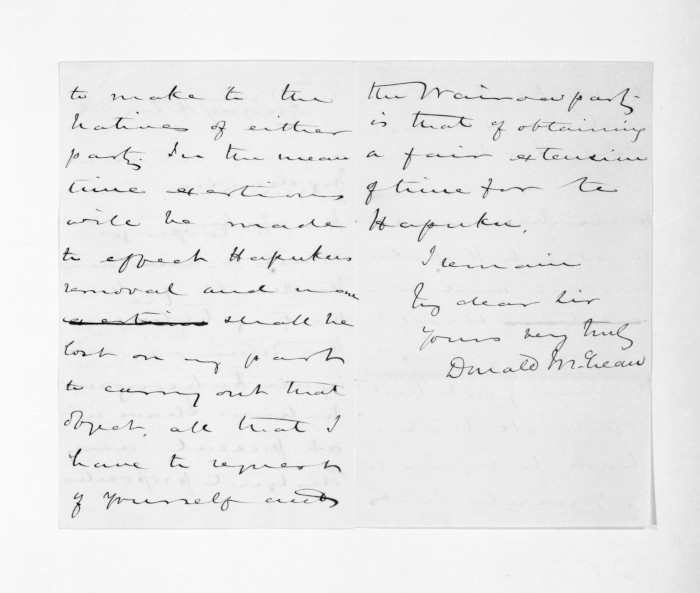 to make to the
Natives of either
party. In the mean
time exertions
will be made
to effect Hapukus
removal and none
exertions shall be
lost on my part
to carry out that
object, all that I
have to request
of yourself and
the Wairoa party
is that of obtaining
a fair extension
of time for te
Hapuku.
I remain
My dear Sir
Yours very truly
Donald McLean